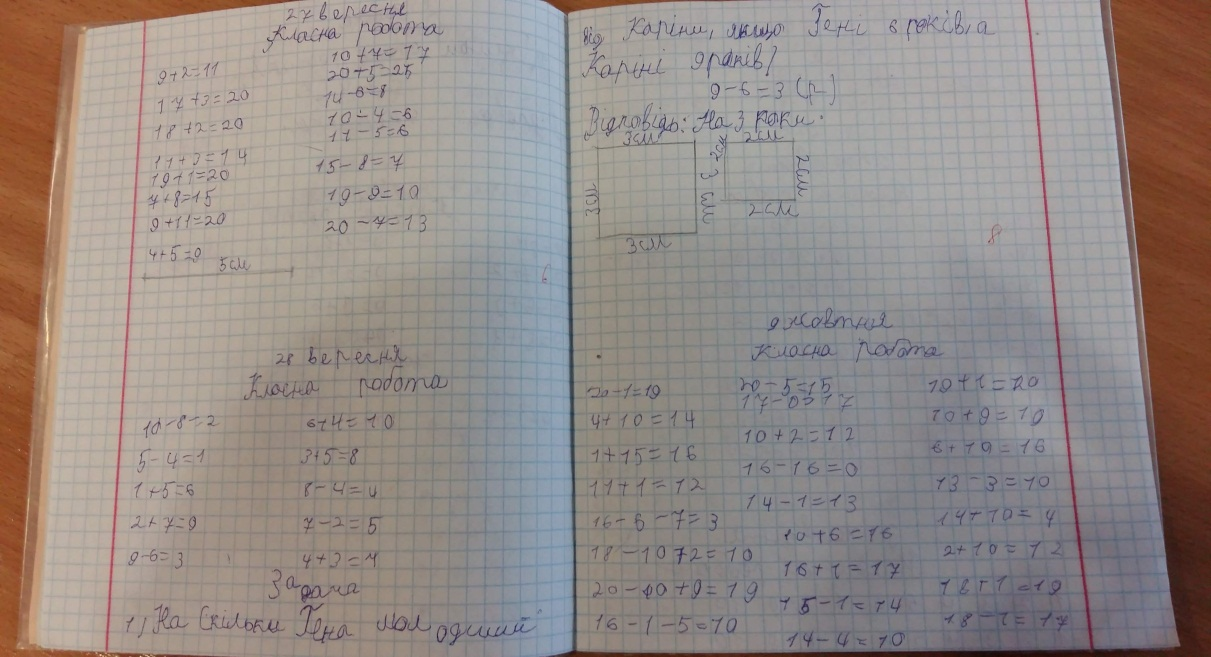 27 вересня
Класна робота
9+2=11
17+3=20
18+2=20
11+3=14
19+1=20
7+8=15
9+11=20
4+5=9
5см
10+7=17
20+5=25
14-6=8
10-4=6
11-5=6
15-8=7
19-9=10
20-7=13
6
28 вересня
Класна робота
10-8=2
5-4=1
1+5=6
2+7=9
9-6=3
6+4=10
3+5=8
8-4=4
7-2=5
4+3=7
Задача
1) На скільки Гена молодший
від Каріни, якщо Гені 6 років, а
Каріні 9 років?
9-6=3 (р-)
Відповідь: На 3 роки.
3см
3см
3см
3см
2см
2см
2см
2см
8
9 жовтня
Класна робота
20-1=19
4+10=14
1+15=16
11+1=12
16-6-7=3
18-10+2=10
20-10+9=19
16-1-5=10
20-5=15
17-0=17
10+2=12
16-16=0
14-1=13
10+6=16
16+1=17
15-1=14
14-4=10
19+1=20
10+9=19
6+10=16
13-3=10
14+10=4
2+10=12
18+1=19
18-1=17